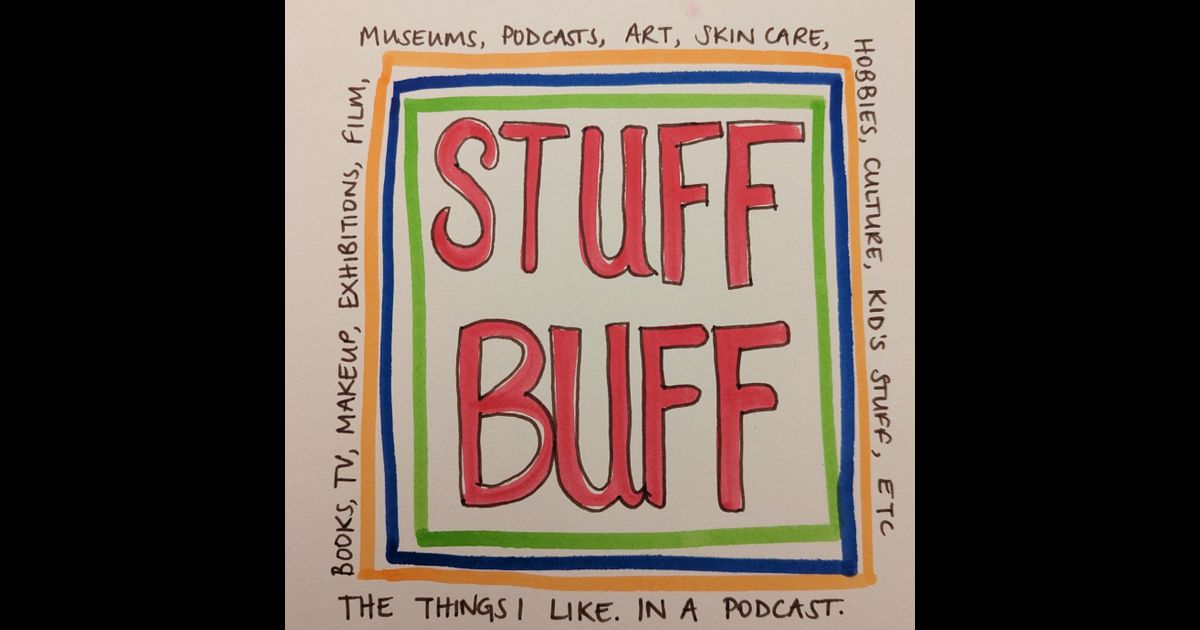 BOOKS, TV, MAKEUP, EXHIBITIONS, FILM,
MUSEUMS, PODCASTS, ART, SKIN CARE,
HOBBIES, CULTURE, KID'S STUFF, ETC
STUFF
BUFF
THE THINGS I LIKE. IN A PODCAST.